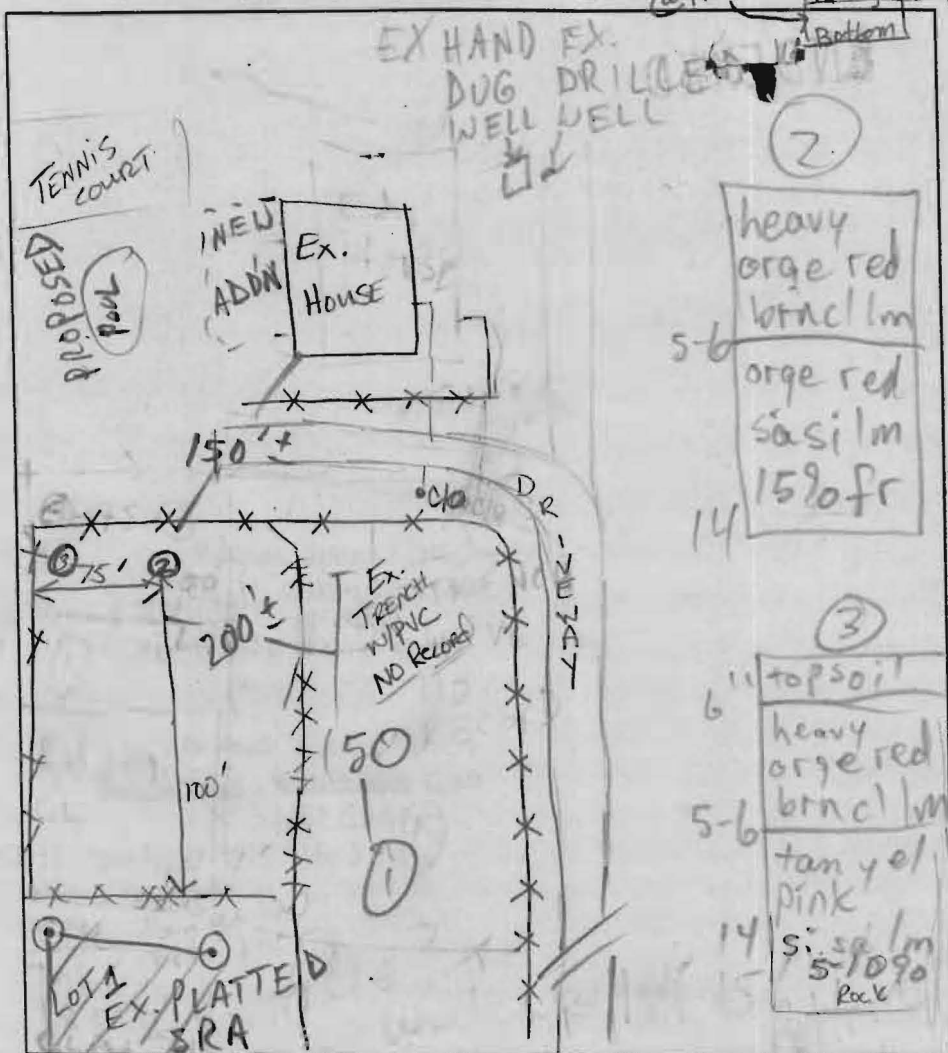 Bottom
EX HAND EX.
DUG DRILLED
WELL WELL
TENNIS
COURT
PROPOSED
POOL
NEW
ADDN
Ex.
HOUSE
150'±
c/o
DRIVEWAY
3
75'
2
200'±
Ex.
TRENCH
W/PVC
NO Record
150
100'
1
LOT 1
EX. PLATTED
SRA
2
heavy
orge red
brn cl lm
5-6
orge red
sa si lm
15% fr
14
3
6" topsoil
heavy
orge red
brn cl lm
5-6
tan yel
pink
14
si sa lm
5-10%
Rock